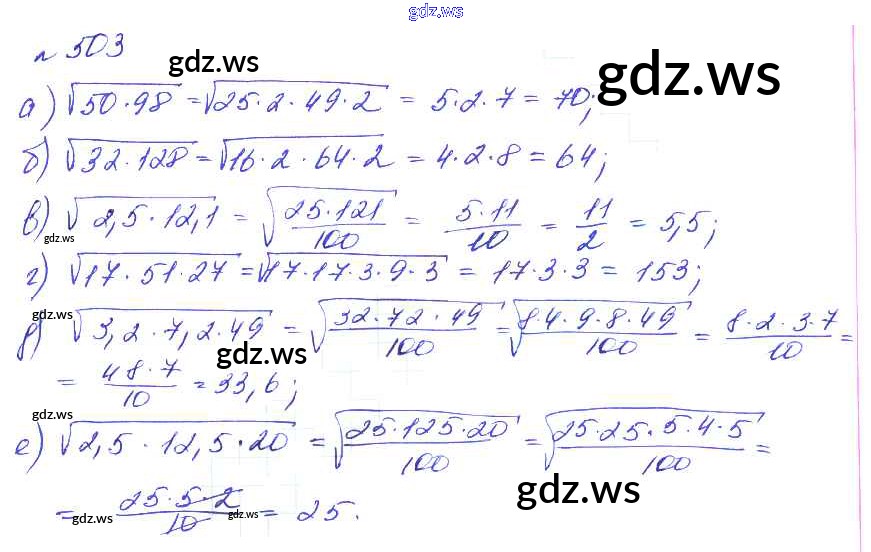 gdz.ws
№ 503
gdz.ws
gdz.ws
а) √50·98 = √25·2·49·2 = 5·2·7 = 70;
б) √32·128 = √16·2·64·2 = 4·2·8 = 64;
в) √2,5·12,1 = √25·121/100 = 5·11/10 = 11/2 = 5,5;
gdz.ws
г) √17·51·27 = √17·17·3·9·3 = 17·3·3 = 153;
gdz.ws
д) √3,2·7,2·49 = √32·72·49/100 = √8·4·9·8·49/100 = 8·2·3·7/10 =
gdz.ws
= 48·7/10 = 33,6;
gdz.ws
е) √2,5·12,5·20 = √25·125·20/100 = √25·25·5·4·5/100 =
gdz.ws
= 25·5·2/10 = 25.
gdz.ws
gdz.ws